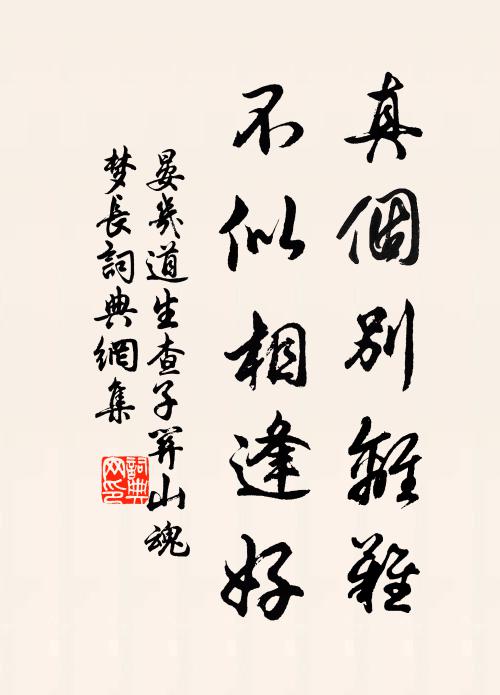 真個別離難
不似相逢好
晏幾道生查子關山魂
梦長詞典網集
詞典
网印